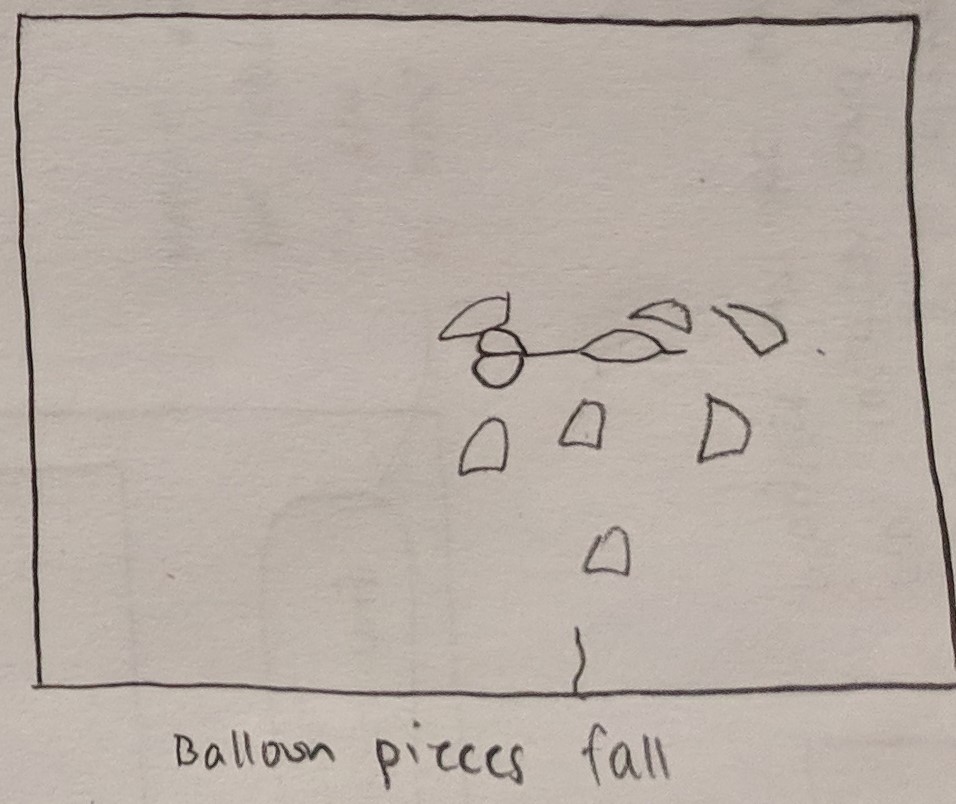 Balloon pieces fall